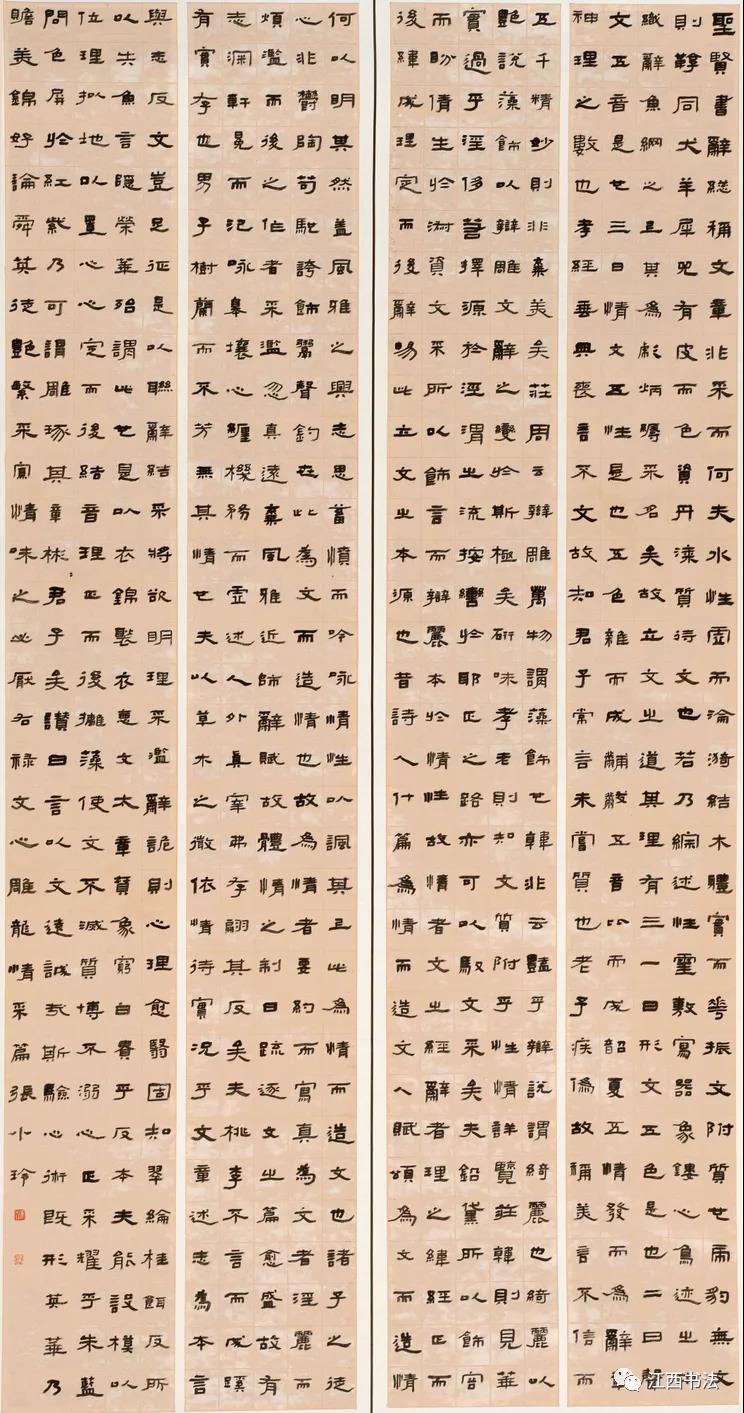 聖賢書辭緫稱文章非采而何夫水性虛而淪漪結木體實而花振文附質也虎豹無文
則鞟同犬羊犀兕有皮而色資丹漆質待文也若乃綜述性靈敷寫器象鏤心鳥迹之
織辭魚網之上其為彪炳縟采名矣故立文之道其理有三一曰形文五色是也二曰聲
文五音是也三曰情文五性是也五色雜而成黼黻五音比而成韶夏五情發而為辭章
神理之數也孝經垂典喪言不文故知君子常言未嘗質也老子疾偽故稱美言不信而
五千精妙則非棄美矣莊周云辯雕萬物謂藻飾也韓非云豔乎辯說謂綺麗也綺麗以
艷說藻飾以辯雕文辭之變於斯極矣研味孝老則知文質附乎性情詳覽莊韓則見華
實過乎淫侈若擇源於涇渭之流按轡於邪正之路亦可以馭文采矣夫鉛黛所以飾容
而盼倩生於淑資文采所以飾言而辯麗本於情性故情者文之經辭者理之緯經正而
後緯成理定而後辭暢此立文之本源也昔詩人什篇為情而造文人賦頌為文而造情
何以明其然蓋風雅之興志思蓄憤而吟詠情性以諷其上此為情而造文也諸子之徒
心非鬱陶苟馳誇飾鬻聲釣世此為文而造情也故為情者要約而寫真為文者淫麗而
煩濫而後之作者采濫忽真遠棄風雅近師辭賦故體情之制日疏逐文之篇愈盛故有
志深軒冕而汜詠皋壤心纏機務而虛述人外真宰弗存翩其反矣夫桃李不言而成蹊
有實存也男子樹蘭而不芳無其情也夫以草木之微依情待實況乎文章述志為本言
與志反文豈足征是以聯辭結采將欲明理采濫辭詭則心理愈翳固知翠綸桂餌反所
以失魚言隱榮華殆謂此也是以衣錦褧衣惡文太章賁象窮白貴乎反本夫能設模以
位理擬地以置心心定而後結音理正而後摛藻使文不滅質博不溺心正采耀乎朱藍
間色屏於紅紫乃可謂雕琢其章彬〻君子矣讚曰言以文遠誠哉斯驗心術既形英華乃
贍美錦好諭舜英徒艷繁采寡情味之必厭右錄文心雕龍情采篇張小玲
江西书法